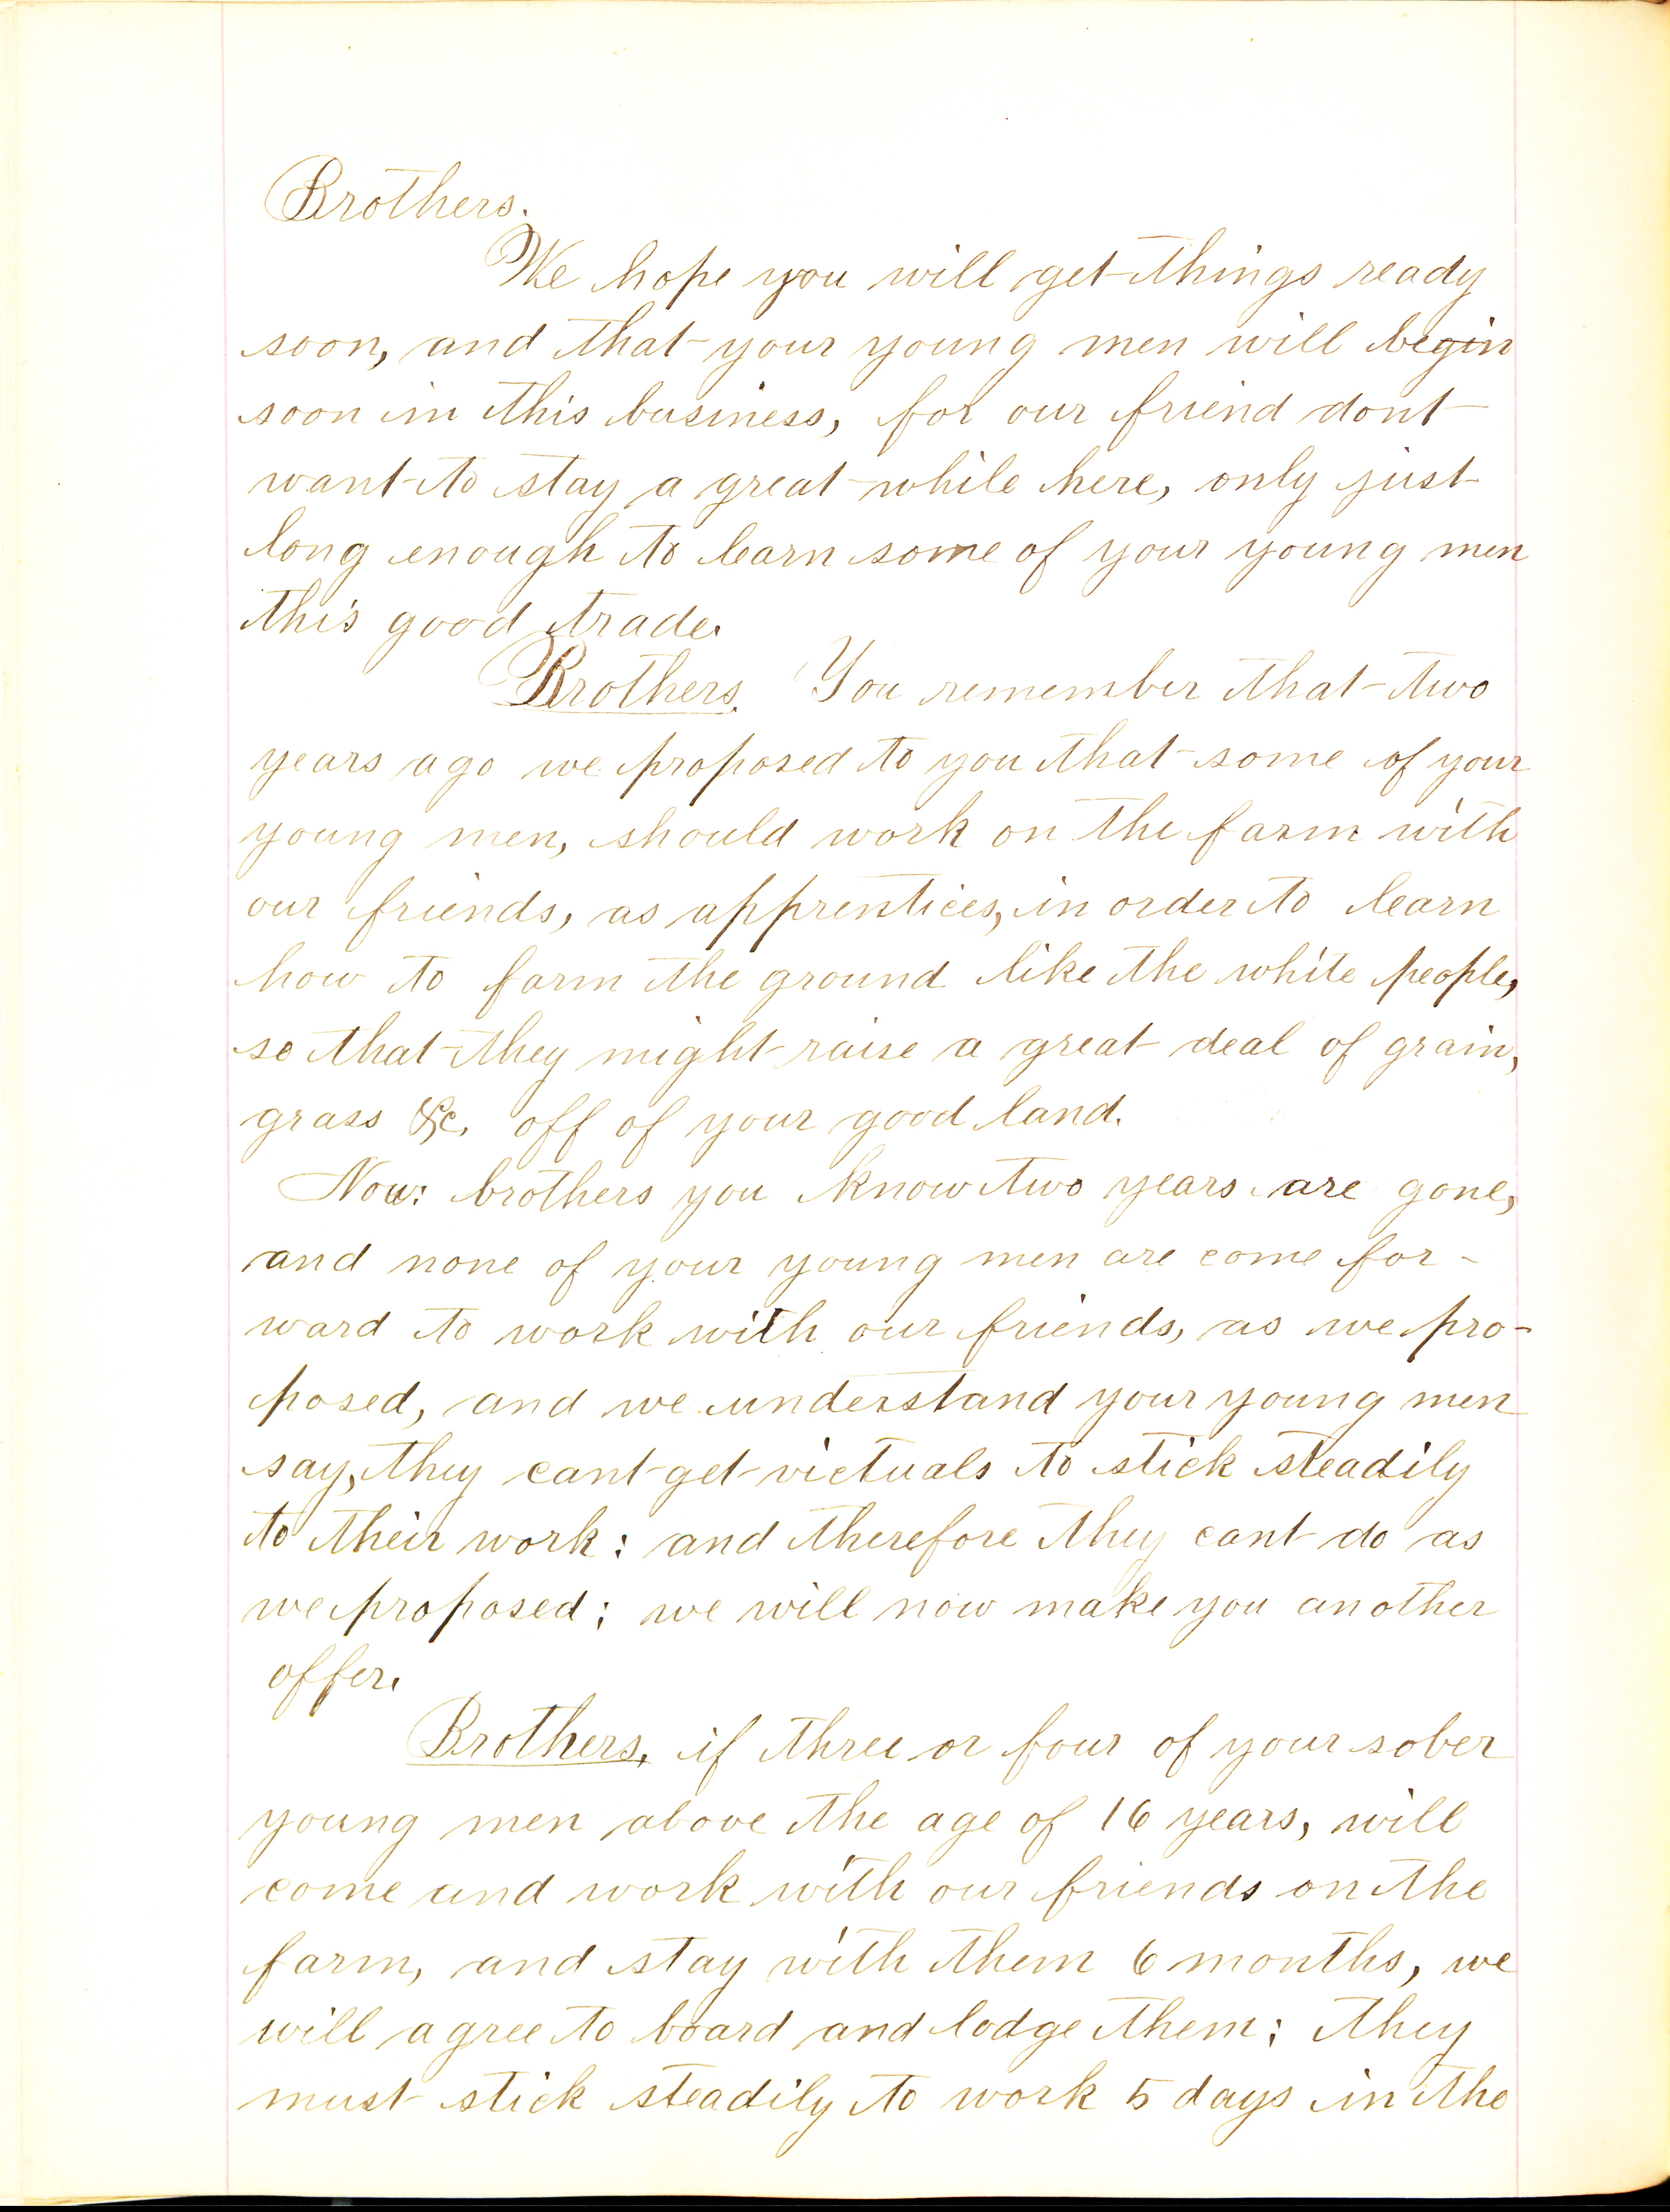 Brothers.
We hope you will get things ready
soon, and that your young men will begin
soon in this business, for our friend dont
want to stay a great while here, only just
long enough to learn some of your young men
this good trade.
Brothers. You remember that two
years ago we proposed to you that some of your
young men, should work on the farm with
our friends, as apprentices, in order to learn
how to farm the ground like the white people,
so that they might raise a great deal of grain,
grass &c. off of your good land.
Now: brothers you know two years are gone,
and none of your young men are come for-
ward to work with our friends, as we pro-
posed, and we understand your young men
say, they cant get victuals to stick steadily
to their work: and therefore they cant do as
we proposed; we will now make you another
offer.
Brothers, if three or four of your sober
young men above the age of 16 years, will
come and work with our friends on the
farm, and stay with them 6 months, we
will agree to board and lodge them; they
must stick steadily to work 5 days in the